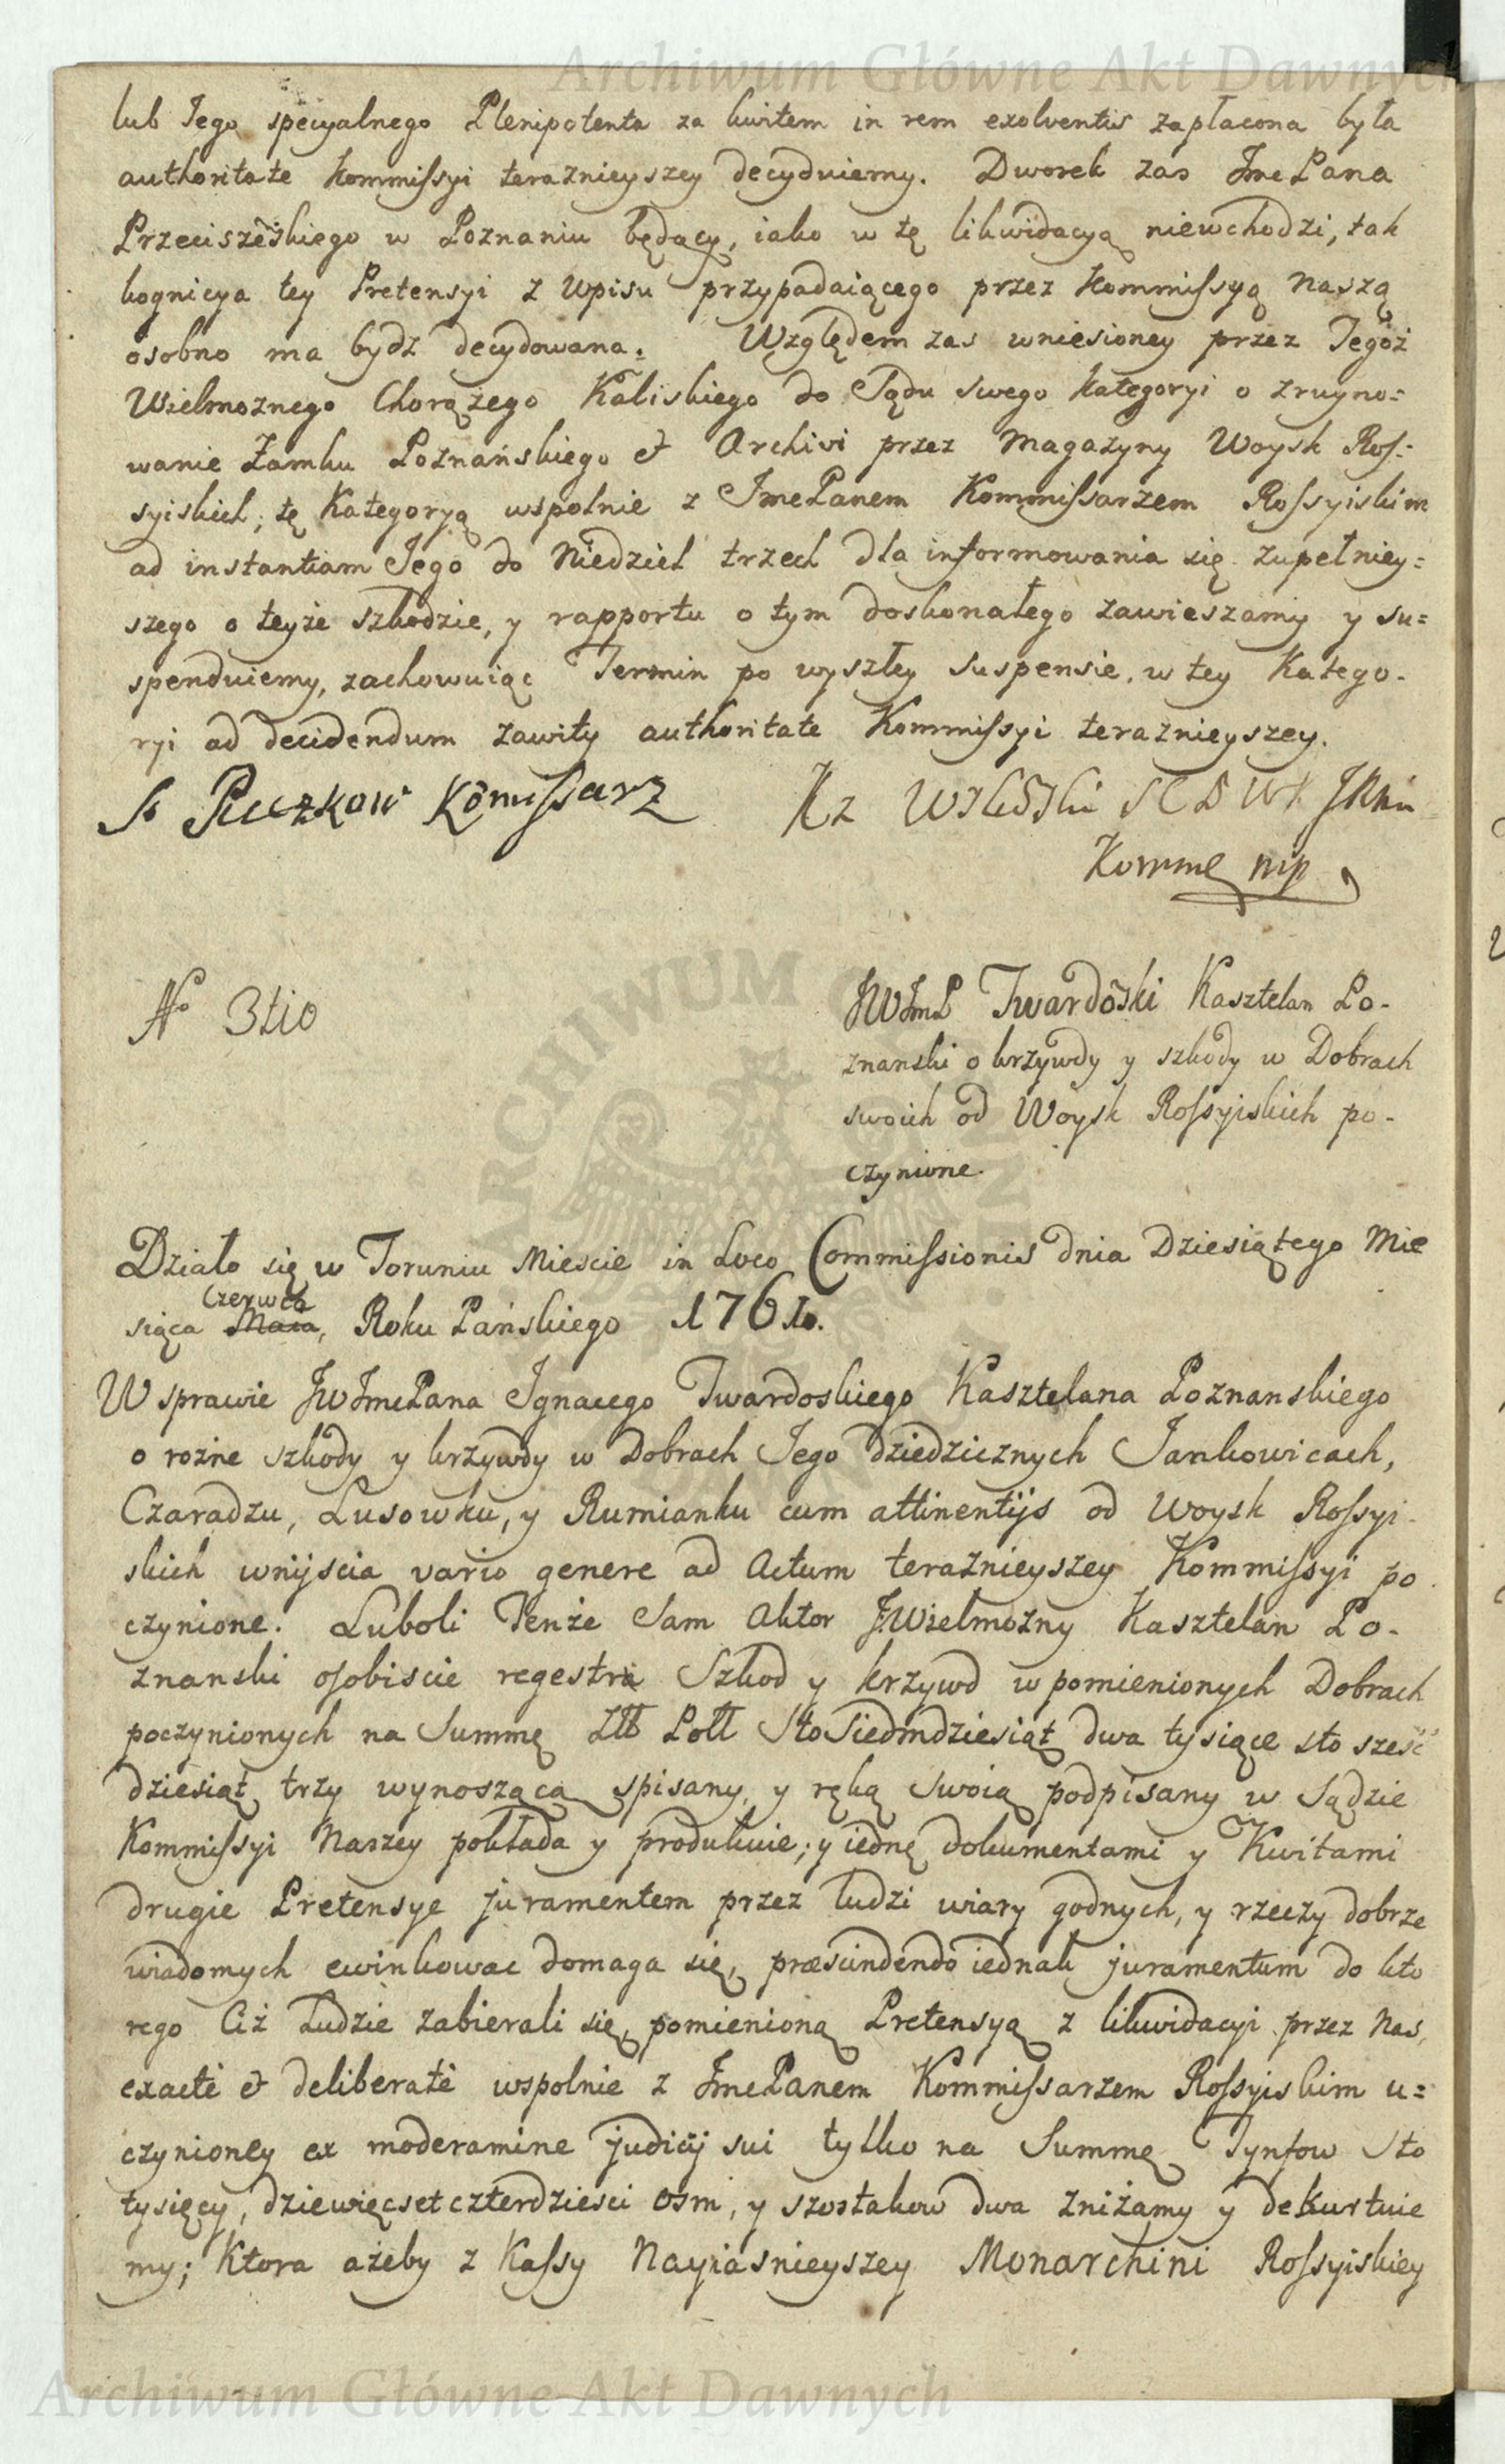 Archiwum Główne Akt Dawnych
lub Jego specyalnego Plenipotenta za kwitem in rem exolventis zapłacona była
authoritate Kommissyi teraznieyszey decyduiemy. Dworek zas JmcPana
Przeciszeskiego w Poznaniu będący, iako w tę likwidacyą niewchodzi, tak
kognicya tey Pretensyi z Wpisu przypadaiącego przez Kommissyą Naszą
osobno ma bydz decydowana. Względem zas wniesioney przez Tegoż
Wielmoznego Chorążego Kaliskiego do Sądu swego kategoryi o zruyno=
wanie Zamku Poznańskiego & Archivi przez Magazyny Woysk Ros=
syiskich; tę Kategoryą wspolnie z JmcPanem Kommissarzem Rossyiskim
ad instantiam Jego do Niedziel trzech dla informowania się zupełniey=
szego o teyże szkodzie, y rapportu o tym doskonałego zawieszamy y su=
spenduiemy, zachowuiąc Termin po wyszłey suspensie, w tey Katego-
ryi ad decidendum zawity authoritate Kommissyi teraznieyszey.
S Puczkow Komissarz
Komm mp
No 3tio
JWJmP Twardoski Kasztelan Po-
znanski o krzywdy y szkody w Dobrach
swoich od Woysk Rossyiskich po-
czynione.
Działo się w Toruniu Miescie in Loco Commissionis dnia Dziesiątego Mie
Czerwca
siąca Maia, Roku Pańskiego 1761o.
W sprawie JWJmcPana Ignacego Twardoskiego Kasztelana Poznanskiego
o rożne szkody y krzywdy w Dobrach Jego dziedzicznych Jankowicach,
Czaradzu, Lusowku, y Rumianku cum attinentijs od Woysk Rossyi-
skich wnijscia vario genere ad Actum teraznieyszey Kommissyi po
czynione. Luboli Tenże Sam Aktor JWielmożny Kasztelan Po-
znanski osobiscie regestra Szkod y krzywd w pomienionych Dobrach
poczynionych na Summę Złł Poll Sto Siedmdziesiąt dwa tysiące sto sześć
dziesiąt trzy wynoszącą spisany, y ręką Swoią podpisany w Sądzie
Kommissyi Naszey pokłada y produkuie; y iednę dokumentami y Kwitami
drugie Pretensye juramentem przez ludzi wiary godnych, y rzeczy dobrze
wiadomych ewinkowac domaga się, præscindendo iednak juramentum do kto
rego Ciż Ludzie zabierali się, pomienioną Pretensyą z likwidacyi przez Nas
exacte & deliberate wspolnie z JmcPanem Kommissarzem Rossyiskim u=
czynioney ex moderamine judicij sui tylko na Summę Tynfow Sto
tysięcy, dziewięcset czterdziesci osm, y szostakow dwa zniżamy y dekurtuie
my; Ktora ażeby z Kassy Nayiasnieyszey Monarchini Rossyiskiey
Archiwum Główne Akt Dawnych